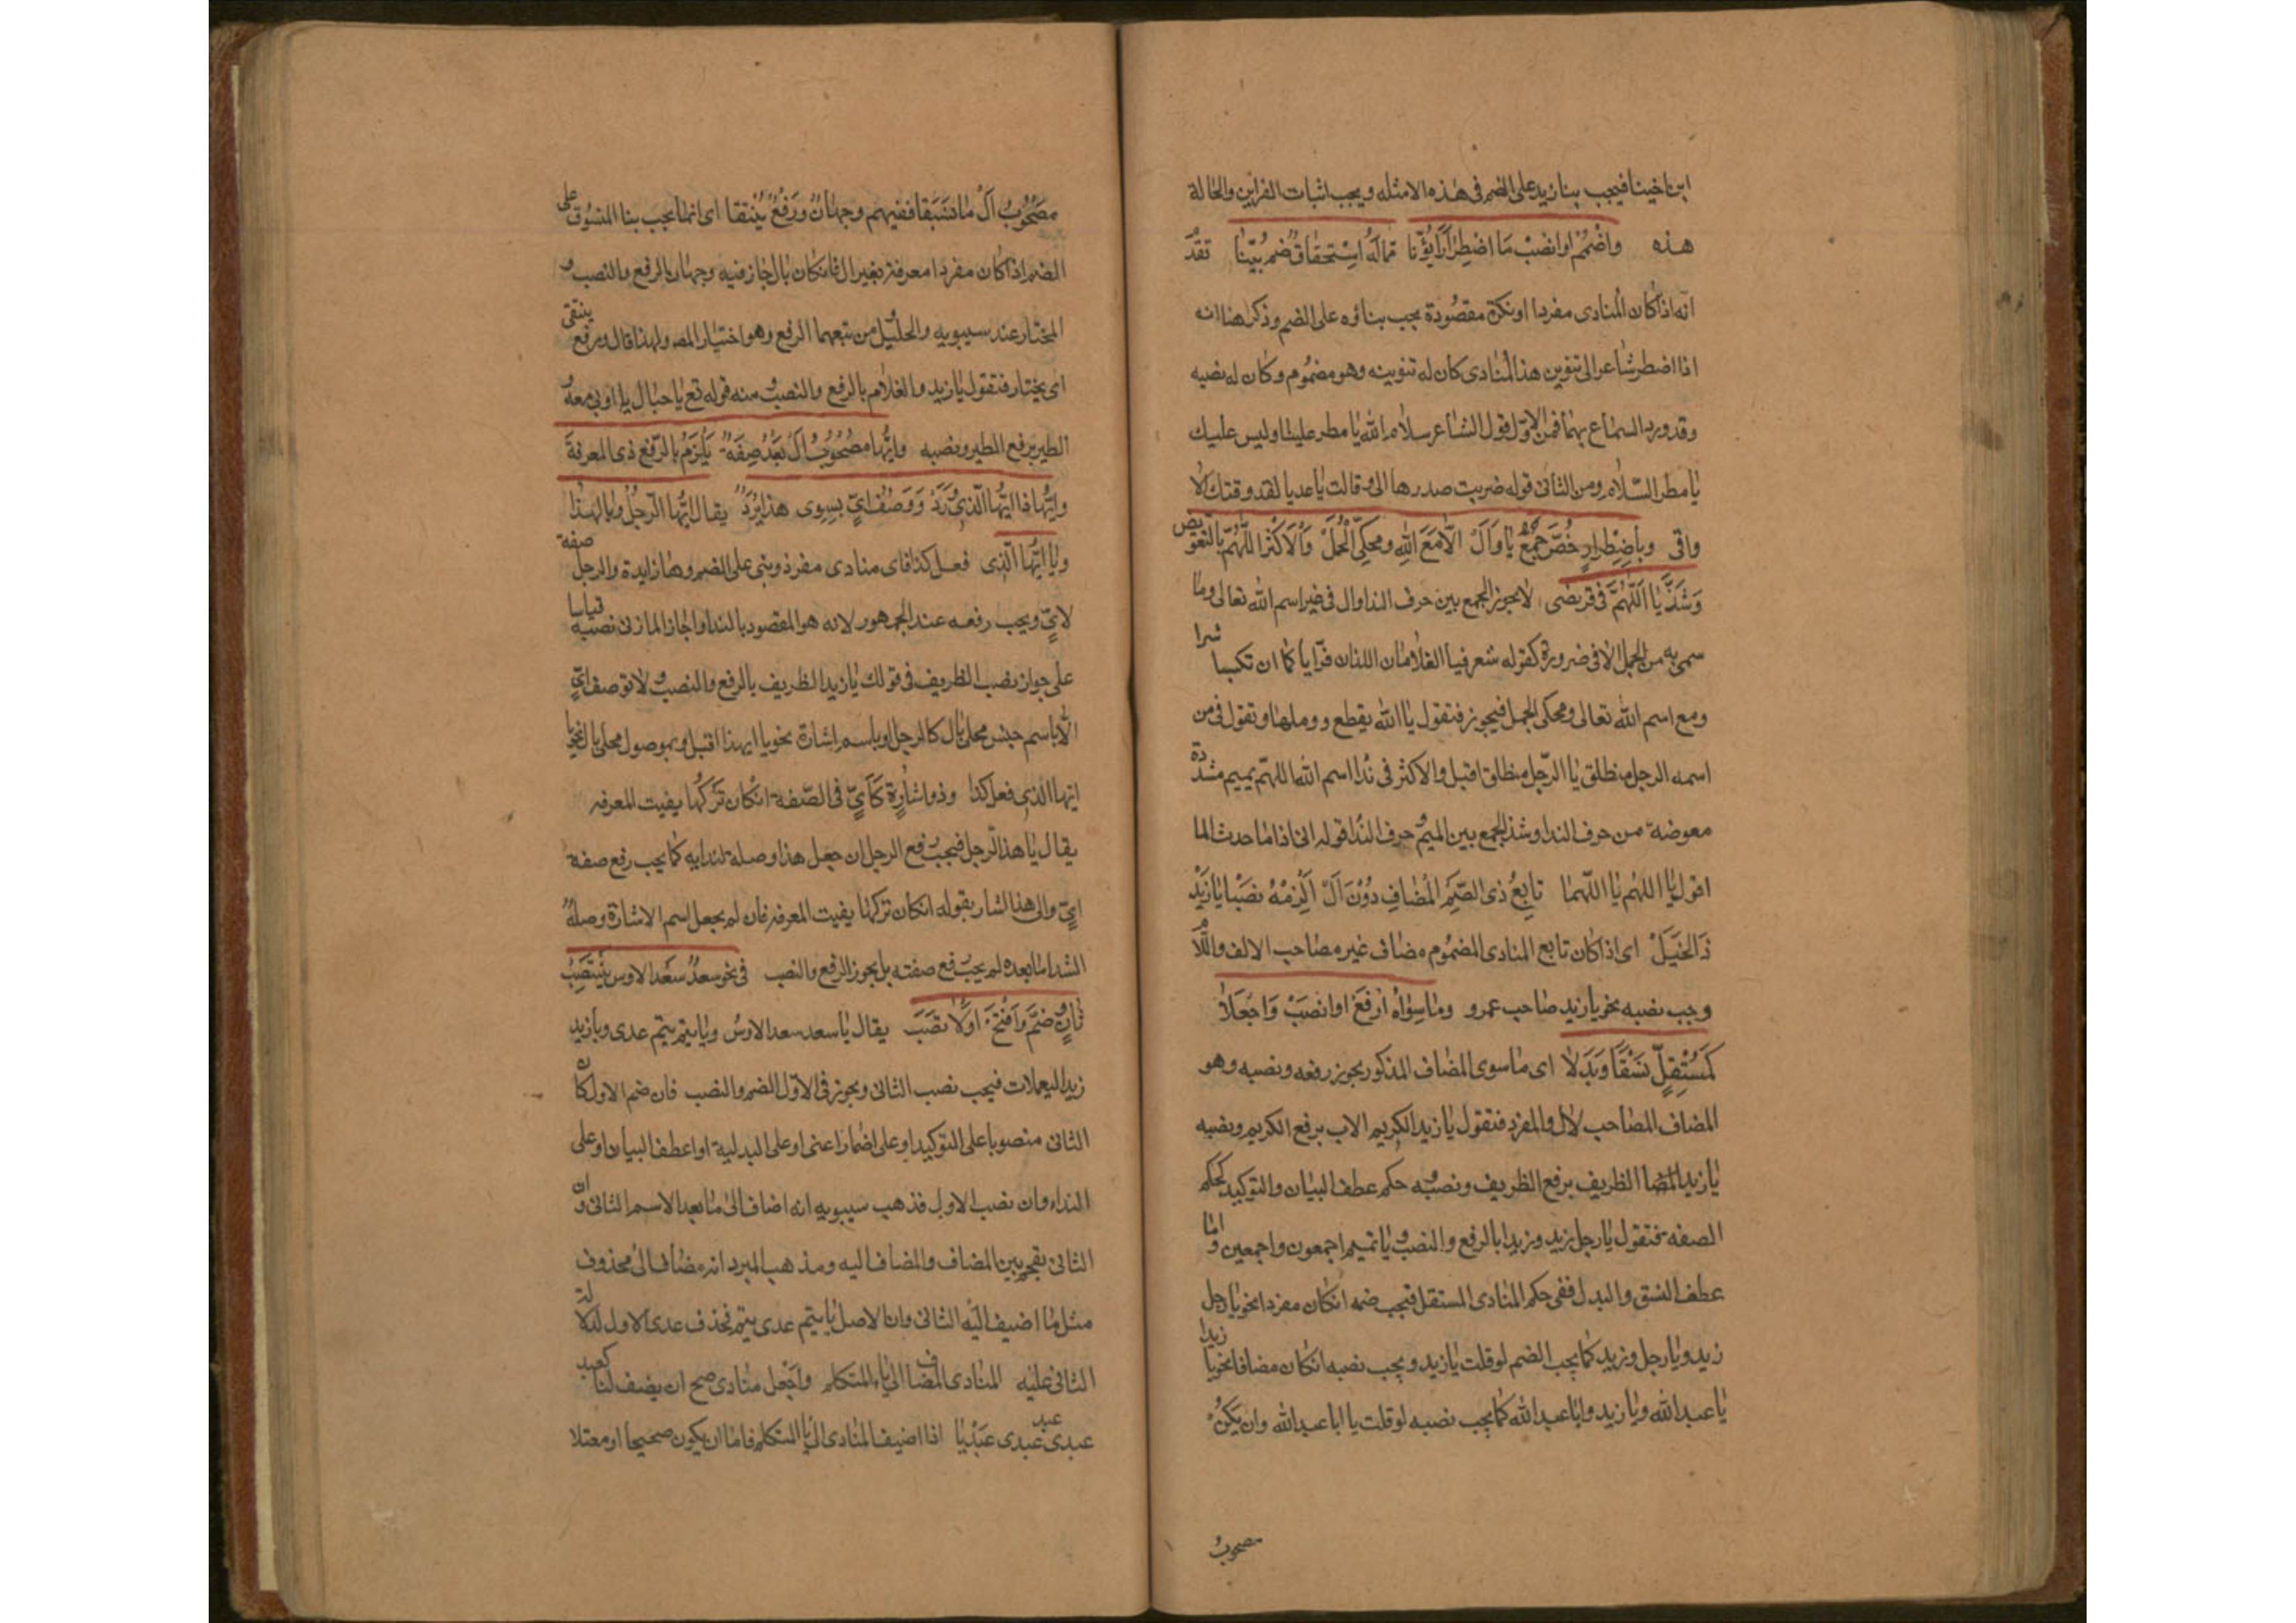 ابن اخينا فيجب بنا زيد على الضم فى هذه الامثله ويجب اثبات الف ابن والحالة
هذه واضْمُمْ اوانصبْ مَا اضطِرَارًا نُوِّنَا مِمَّا لَهُ اِسْتِحقَاقُ ضمٍّ بُيِّنَا تقدّم
انه اذا كان المنادى مفردا او نكرة مقصُودة يجب بناؤه على الضم وذكر هنا انه
اذا اضطر شاعر الى تنوين هذا المنادى كان له تنوينه وهو مضمُوم وكان له نصبه
وقد ورد السماع بهما فمن الاوّل قول الشاعر سلام الله يا مطر عليها وليس عليك
يا مطر السّلام ومن الثانى قوله ضربت صدرها الى وقالت يا عديا لقد وقتك الا
واقى وباضِطرارٍ خُصَّ جَمْعُ يَا وَالْ اِلّا مَعَ اللهِ ومحكيّ الجُمَلْ وَالاَكْثَرُ اللَّهُمَّ بالتعويض
وَشَذَّ يَا اللّهُمَّ فى قريضى لا يجوز الجمع بين حرف الندا وال فى غير اسم الله تعالى وما
سمى به من الجمل الا فى ضرورة كقوله شعر فيا الغلامان اللذان فرّا ايا كما ان تكسبا شرا
ومع اسم الله تعالى ومحكى الجمل فيجوز فتقول يا الله بقطع ووصلها وتقول فى من
اسمه الرجل منطلق يا الرّجل منطلق اقبل والاكثر فى ندا اسم الله اللهمّ بميم مشدّدة
معوضة من حرف الندا وشذ الجمع بين الميم وحرف الندا قوله انى اذا ما حدث الما
اقول يا اللهم يا اللّهما تابِعُ ذى الضّمِّ المُضَافِ دُوْنَ اَلْ اَلْزِمْهُ نَصْبًا يا زَيْدُ
ذَا الحِيَلْ اى اذا كان تابع المنادى المضمُوم مضاف غير مصاحب الالف واللّام
وجب نصبه نحو يا زيد صاحب عمرو ومَا سِوَاهُ ارْفَعْ اوانصَبْ وَاجعَلَا
كَمُسْتَقِلٍّ نَسَقًا وَبَدَلا اى ما سوى المضاف المذكور يجوز رفعه ونصبه وهو
المضاف المصاحب لال والمفرد فتقول يا زيد الكريم الاب برفع الكريم ونصبه
يا زيد الظريف برفع الظريف ونصبه و حكم عطف البيان والتوكيد كحكم
الصفة فتقول يا رجل زيد وزيدا بالرفع والنصب ويا تميم اجمعون واجمعين واما
عطف النسق والبدل ففى حكم المنادى المستقل فيجب ضمه ان كان مفردا نحو يا رجل
زيد ويا رجل وزيد كما يجب الضم لو قلت يا زيد ويجب نصبه ان كان مضافا نحو يا زيد ابا
يا عبد الله ويا زيد وابا عبد الله كما يجب نصبه لو قلت يا ابا عبد الله وان يَكنْ
مصحوبُ
مصْحُوبُ اَلْ مَا نُسِقَا ففيهِ وجهَانِ ورَفْعٌ يُنْتقَا اى انما يجب بنا المنسُوق على
الضم اذا كان مفردا معرفة بغير ال فان كان بال جاز فيه وجهان الرفع والنصب و
المختار عند سيبويه والخليل ومن تبعهما الرفع وهو اختيار المص ولهذا قال ورفع ينتقى
اى يختار فتقول يا زيد والغلام بالرفع والنصب ومنه قوله تع يا جبال اوبى معه و
الطير برفع الطير ونصبه وايُّهَا مصْحُوبُ اَلْ بَعْدُ صِفَهْ يَلْزَمُ بالرّفع لذى المعرفة
وايُّهَا ذَا ايُّهَا الّذِى وَرَدْ وَوَصْفُ اَيٍّ بسِوى هذا يُرَدّ يقال ايّها الرّجلُ ويا ايهذا
ويا ايُّها الّذِى فعل كذا فاى منادى مفرد وبنى على الضم وها زايدة والرجل صفة
لاىّ ويجب رفعه عند الجمهور لانه هو المقصود بالندا واجاز المازنى نصبه قياسا
على جواز نصب الظريف فى قولك يا زيد الظريف بالرفع والنصب ولا توصف اىّ
الّا باسم جنس محلى بال كالرجل او باسم اشارة نحو يا ايهذا اقبل وبموصول محلى بال نحو يا
ايّها الذى فعل كذا وذو اشارةٍ كَاَيّ فى الصّفه ان كان تَرْكُهَا يفيت المعرفه
يقال يا هذا الرّجل فيجب رفع الرجل ان جعل هذا وصلة لندايه كما يجب رفع صفة
اىّ والى هذا اشار بقوله ان كان تركها يفيت المعرفه فان لم يجعل اسم الاشارة وصلة
لندا ما بعده لم يجب رفع صفته بل يجوز الرفع والنصب فى نحو سعدُ سَعْدَ الاوس يَنْتَصِبْ
ثَانٍ وضُمَّ وَافْتَحْ اَوّلًا تُصِبْ يقال يا سعد سعد الاوسُ ويا تيم تيم عدى ويا زيد
زيد اليعملات فيجب نصب الثانى ويجوز فى الاوّل الضم والنصب فان ضم الاول كان
الثانى منصوبا على التوكيد او على اضمار اعنى او على البدلية او اعطف البيان او على
النداء وان نصب الاول فذهب سيبويه انه اضاف الى ما بعد الاسم الثانى وان
الثانى مقحم بين المضاف والمضاف اليه ومذهب المبرد انه مضاف الى محذوف
مثل ما اضيف اليه الثانى وان الاصل يا تيم عدى تيم عدى فحذف عدى الاول لدلالة
الثانى عليه المنادى المضاف الى ياء المتكلم واجْعل منادى صح ان يضف لـيا كعبد
عبدى عبد عبدى عَبْدَ عبديا اذا اضيف المنادى الى يا المتكلم فاما ان يكون صحيحا او معتلا